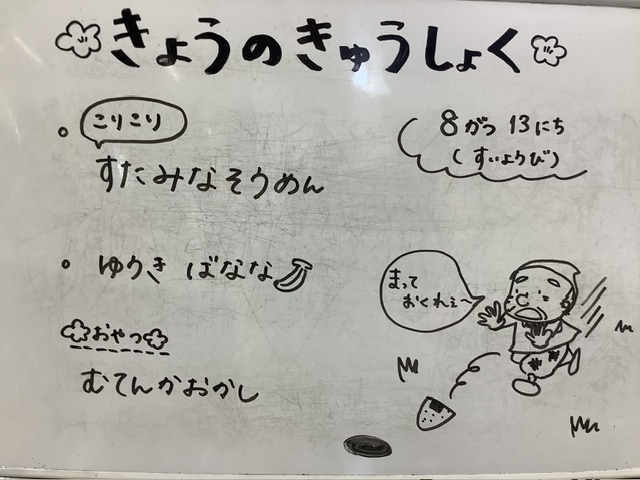 きょうのきゅうしょく
8がつ 13にち
(すいようび)
こりこり
すたみなそうめん
ゆうき ばなな
おやつ
むてんかおかし
まって
おくれぇ〜